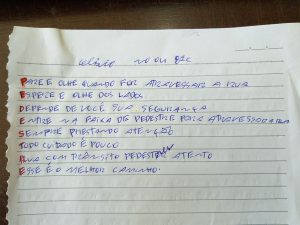 PARE E OLHE QUANDO FOR ATRAVESSAR A RUA
ESPERE E OLHE DOS LADOS
DEPENDE DE VOCÊ SUA SEGURANÇA
ENTRE NA FAIXA DE PEDESTRE PARA ATRAVESSAR
SEMPRE PRESTANDO ATENÇÃO
TODO CUIDADO É POUCO
RUA COM TRÂNSITO PEDESTRE ATENTO
ESSE É O MELHOR CAMINHO.